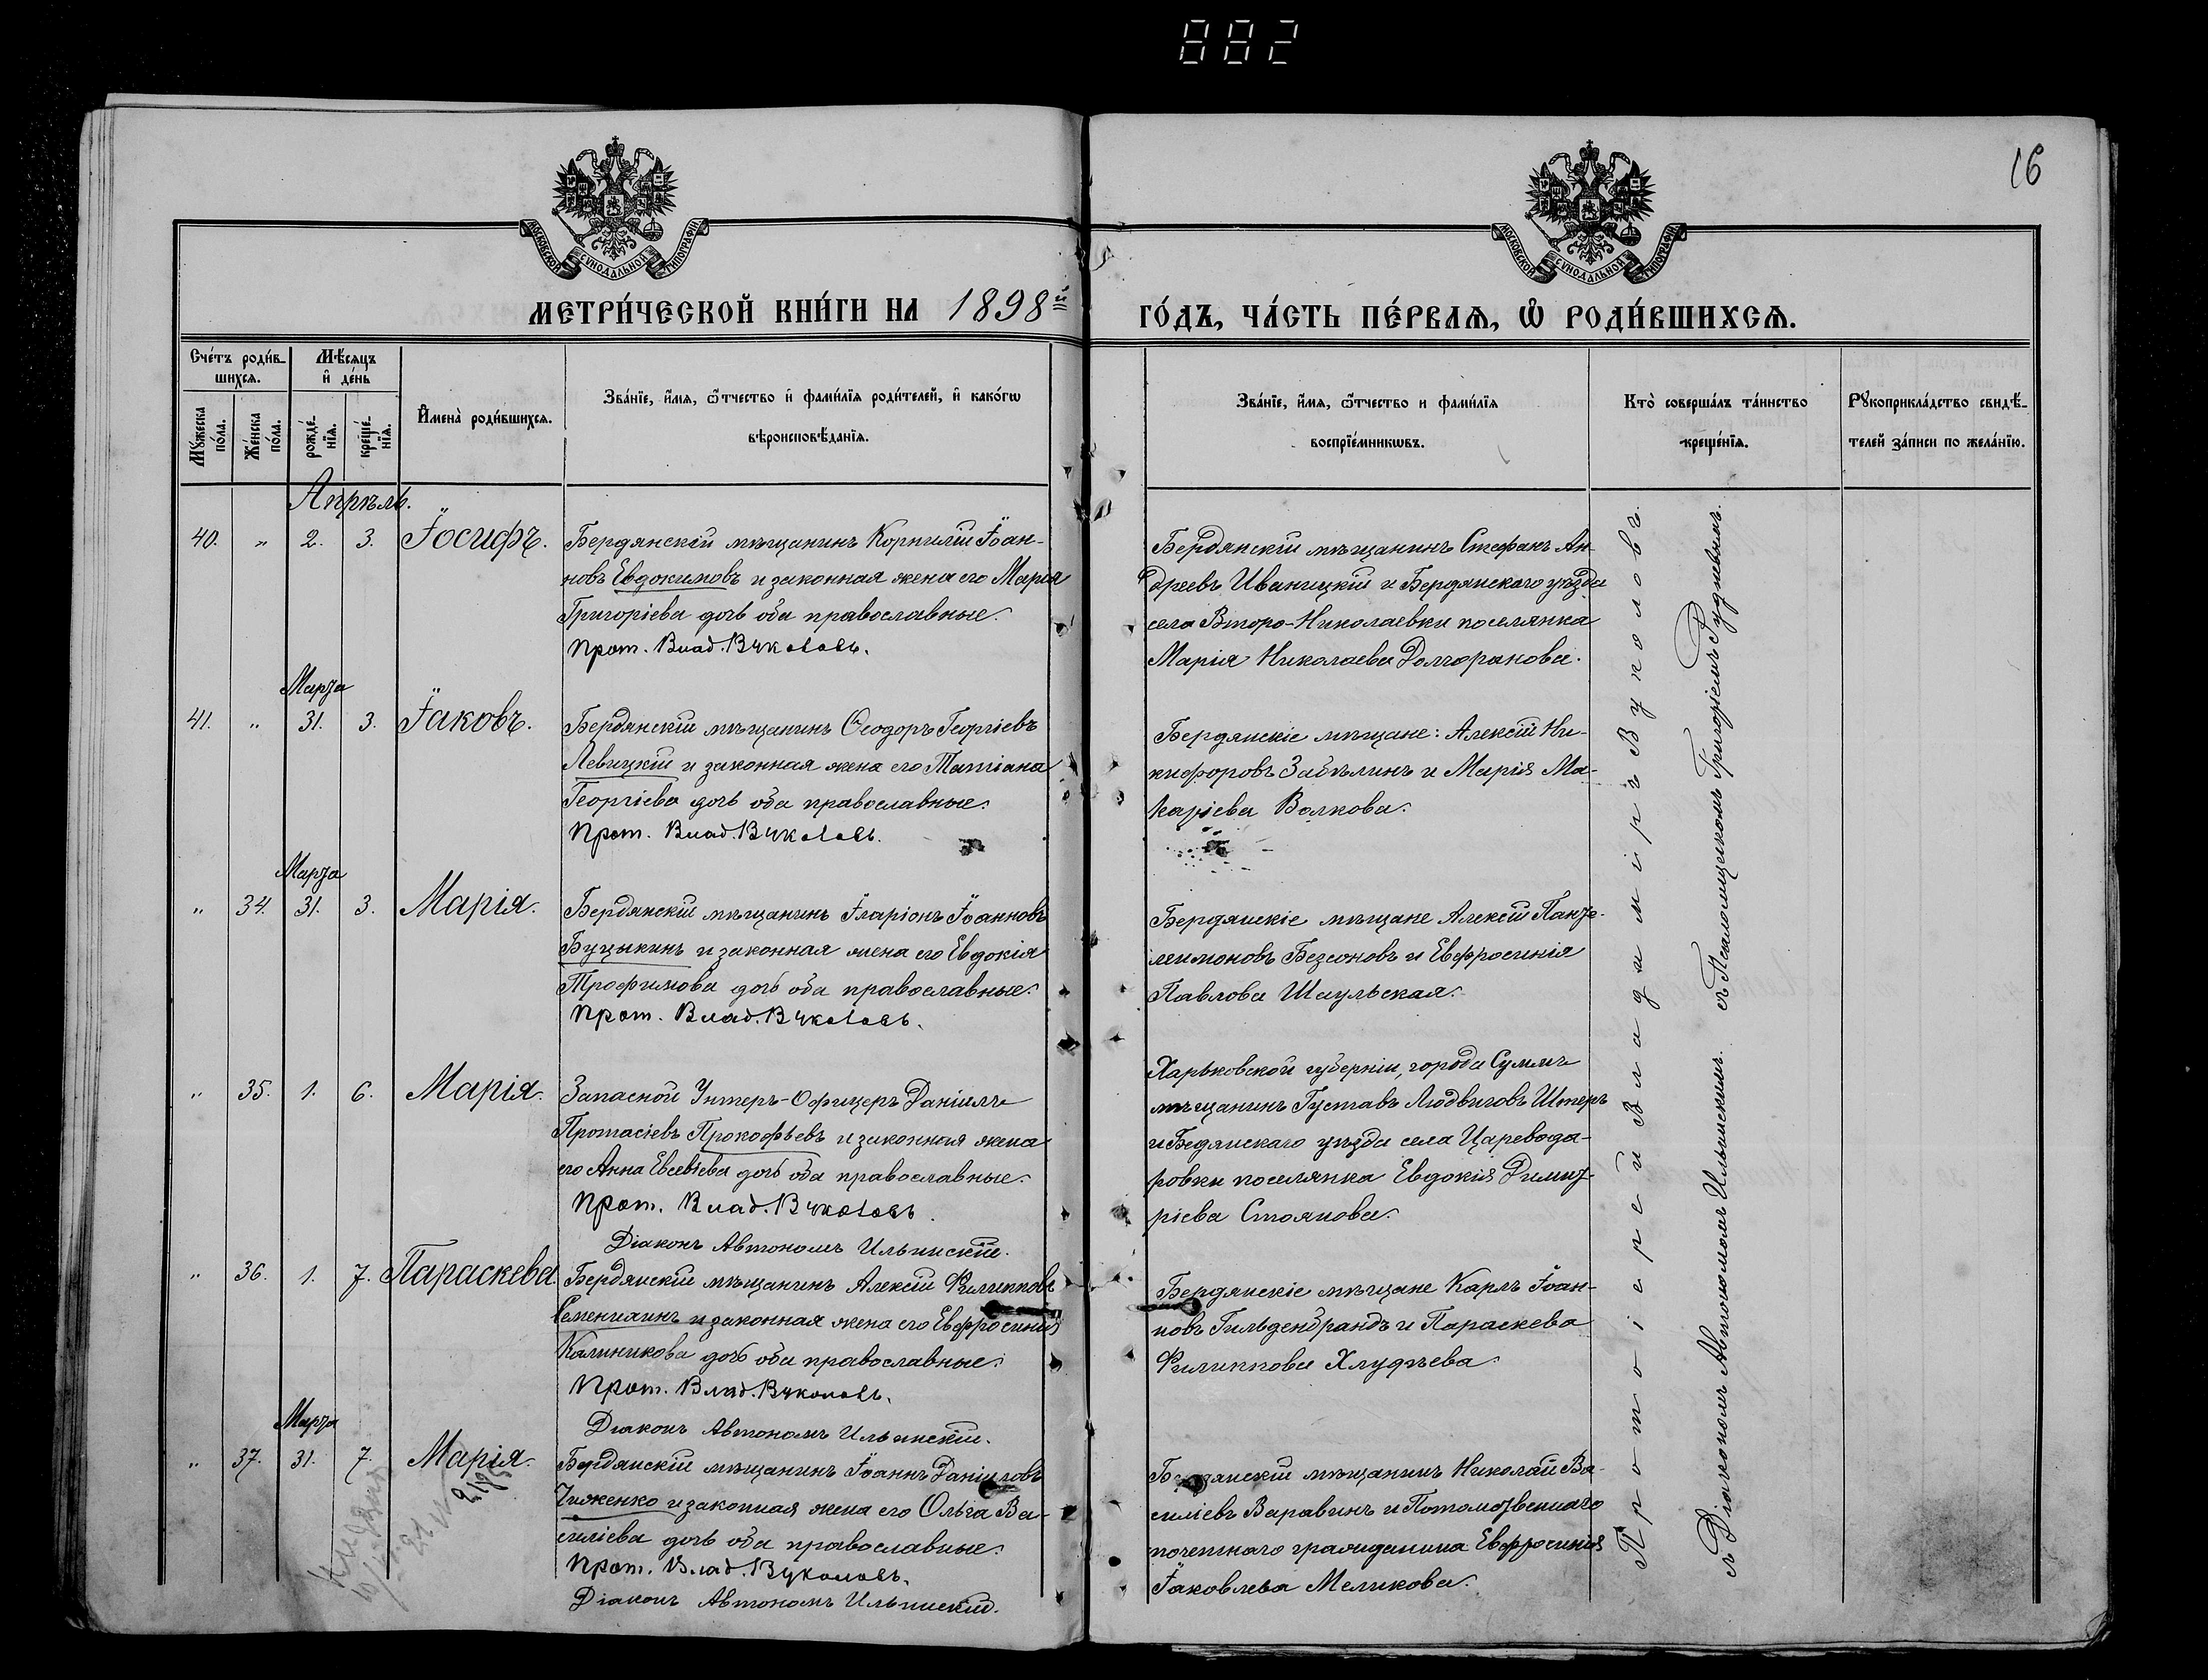 882
16
МОСКОВСКОЙ СѴНОДАЛЬНОЙ ТИПОГРАФІИ
МОСКОВСКОЙ СѴНОДАЛЬНОЙ ТИПОГРАФІИ
МЕТРИ́ЧЕСКОЙ КНИ́ГИ НА 1898й
ГО́ДЪ, ЧА́СТЬ ПЕ́РВАѦ, Ѽ РОДИ́ВШИХСѦ.
Сче́тъ роди́в-
шихсѧ.
Мѣ́сѧцъ
и҆ де́нь
Мꙋ́жеска
по́ла.
Же́нска
по́ла.
рожде́-
нїѧ.
креще́-
нїѧ.
И҆мена̀ роди́вшихсѧ.
Зва́нїе, и҆́мѧ, ѻ҆́тчество и҆ фами́лїѧ роди́телей, и҆ како́гѡ
вѣроисповѣ́данїѧ.
Зва́нїе, и҆́мѧ, ѻ҆́тчество и фами́лїѧ
воспрїе́мникѡвъ.
Кто̀ соверша́лъ та́инство
креще́нїѧ.
Рꙋкоприкла́дство свидѣ́-
телей за́писи по жела́нїю.
Апрѣль.
40. " 2. 3. Іосифъ. Бердянскій мѣщанинъ Корнилій Іоан-
новъ Евдокимовъ и законная жена его Марія
Григоріева дочь оба православные.
Прот. Влад. Вуколовъ.
Бердянскій мѣщанинъ Стефанъ Ан-
дреевъ Иваницкій и Бердянскаго уѣзда
села Второ-Николаевки поселянка
Марія Николаева Долгоранова.
Марта
41. " 31. 3. Іаковъ. Бердянскій мѣщанинъ Ѳеодоръ Георгіевъ
Левицкій и законная жена его Татіана
Георгіева дочь оба православные.
Прот. Влад. Вуколовъ.
Бердянскіе мѣщане: Алексій Ни-
кифоровъ Забѣлинъ и Марія Ма-
каріева Волкова.
Марта
" 34. 31. 3. Марія. Бердянскій мѣщанинъ Іларіонъ Іоанновъ
Буцыкинъ и законная жена его Евдокія
Трофимова дочь оба православные.
Прот. Влад. Вуколовъ.
Бердянскіе мѣщане Алексій Панте-
леимоновъ Безсоновъ и Евфросинія
Павлова Шаульская.
" 35. 1. 6. Марія. Запасной Унтеръ-Офицеръ Даніилъ
Протасіевъ Прокофьевъ и законная жена
его Анна Евсевіева дочь оба православные.
Прот. Влад. Вуколовъ.
Діаконъ Автономъ Ильинскій.
Харьковской губерніи, города Суммъ
мѣщанинъ Густавъ Людвиговъ Штеръ
и Бедянскаго уѣзда села Царевода-
ровки поселянка Евдокія Димит-
ріева Стоянова.
" 36. 1. 7. Параскева. Бердянскій мѣщанинъ Алексій Филипповъ
Семенихинъ и законная жена его Евфросинія
Калиникова дочь оба православные.
Прот. Влад. Вуколовъ.
Діаконъ Автономъ Ильинскій.
Бердянскіе мѣщане Карлъ Іоан-
новъ Гильденбрандъ и Параскева
Филиппова Хлудѣева.
Марта
" 37. 31. 7. Марія. Бердянскій мѣщанинъ Іоаннъ Даніиловъ
Чиженко и законная жена его Ольга Ва-
силіева дочь оба православные.
Прот. Влад. Вуколовъ.
Діаконъ Автономъ Ильинскій.
Бердянскій мѣщанинъ Николай Ва-
силіевъ Варавинъ и Потомственнаго
почетнаго гражданина Евфросинія
Іаковлева Меликова.
Протоіерей Владиміръ Вуколовъ
съ Діакономъ Автономомъ Ильинскимъ. съ Псаломщикомъ Григоріемъ Рудневымъ.